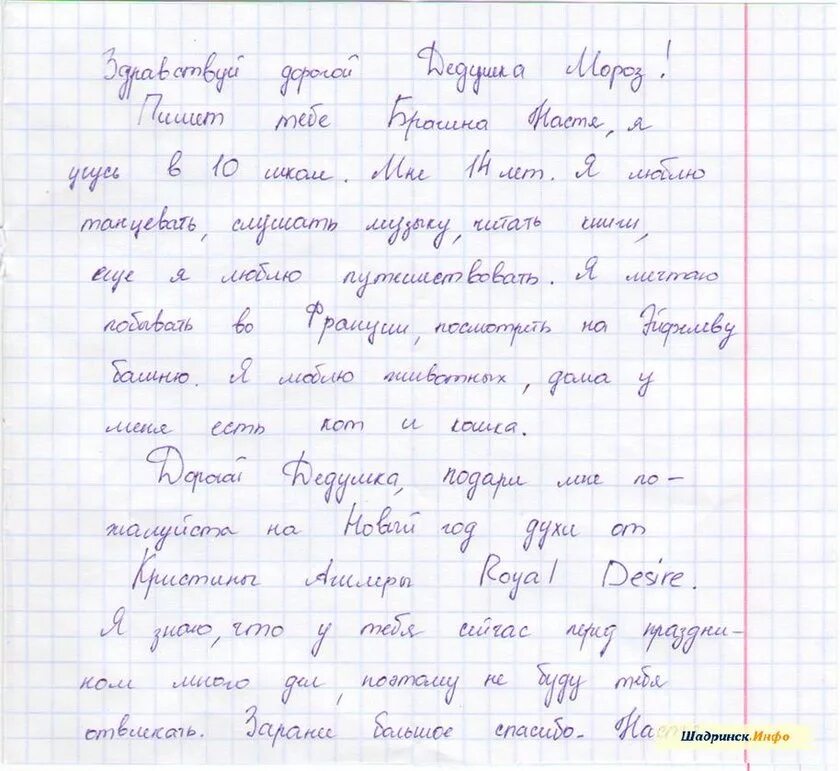 Здравствуй дорогой Дедушка Мороз!
Пишет тебе Брагина Настя, я
учусь в 10 школе. Мне 14 лет. Я люблю
танцевать, слушать музыку, читать книги,
еще я люблю путешествовать. Я мечтаю
побывать во Франции, посмотреть на Эйфилеву
башню. Я люблю животных, дома у
меня есть кот и кошка.
Дорогой Дедушка, подари мне по-
жалуйста на Новый год духи от
Кристины Агилеры Royal Desire.
Я знаю, что у тебя сейчас перед праздни-
ком много дел, поэтому не буду тебя
отвлекать. Заранее большое спасибо. Настя
Шадринск.Инфо